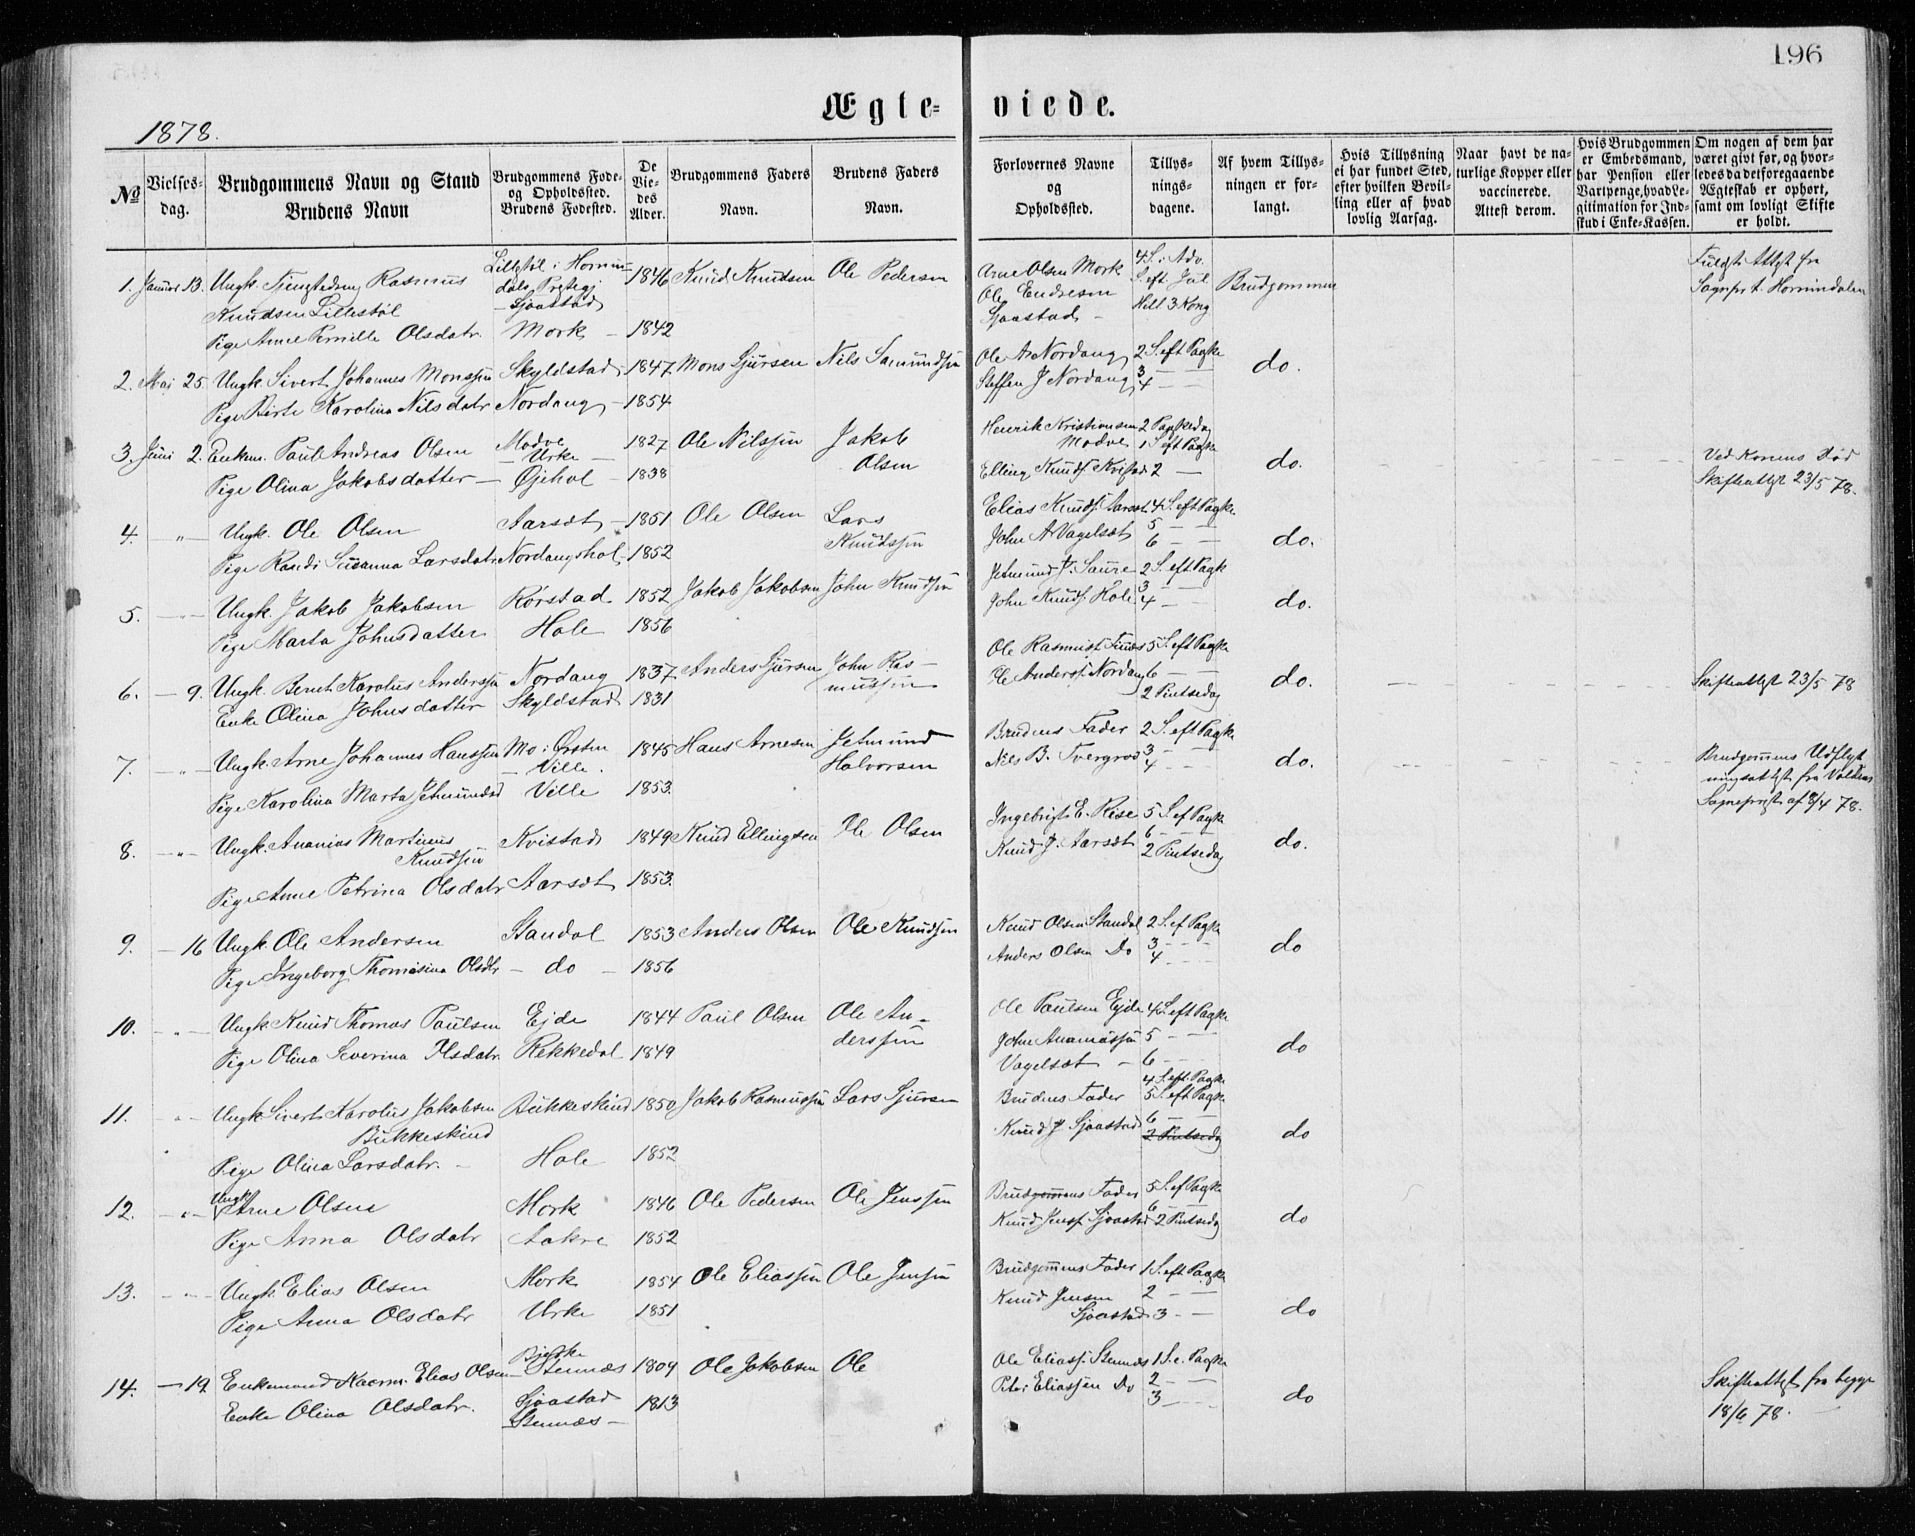 196
Ægte-viede.
1878.
No
Vielses-dag.
Brudgommens Navn og Stand
Brudens Navn
Brudgommens Føde-
og Opholdssted.
Brudens Fødested.
De
Vie-
des
Alder.
Brudgommens Faders
Navn.
Brudens Faders
Navn.
Forlovernes Navne
og
Opholdssted.
Tillys-
nings-
dagene.
Af hvem Tillys-
ningen er for-
langt.
Hvis Tillysning
ei har fundet Sted,
efter hvilken Bevil-
ling eller af hvad
lovlig Aarsag.
Naar havt de na-
turlige Kopper eller
vaccinerede.
Attest derom.
Hvis Brudgommen
er Embedsmand,
har Pension eller
Vartpenge, hvad Le-
gitimation for Ind-
skud i Enke-Kassen.
Om nogen af dem har
været givt før, og hvor-
ledes da det foregaaende
Ægteskab er ophørt,
samt om lovligt Skifte
er holdt.
1. Januar 13. Ungk. Rasmus
Knudsen Lillestøl
Pige Anne Pernille Olsdatr.
Lillestøl i Hornin-
dals Prstgj.
Sjaastad
Mork
1846
1842
Knud Knudsen
Ole Pedersen
Arne Olsen Mork
Ole Endresen
Sjaastad
4 S. i Adv.
S. eft. Jul
Hell 3 Kong
Brudgommen
Sognpr. t. Hornindalen
2. Mai 25. Ungk. Sivert Johannes Monssen
Pige Birte Karolina Nilsdatr
Skyldstad
Nordang
1847
1854
Mons Sjursen
Nils Samundsen
Ole A Nordang
Steffen J Nordang
2 S. eft Paaske
3 — —
4 — —
do.
3. Juni 2. Enkem. Paul Andreas Olsen
Pige Olina Jakobsdatter
Modve
Urke
Øjehol
1827
1838
Ole Nilssen
Jakob
Olsen
Henrik Kristiansen
Modve
Elling Knuds. Kvistad
2 Paaskedag
1 S eft Paaske
2 —
do.
Ved Konens Død
Skifteattest 23/5 78.
4. — " — Ungk. Ole Olsen
Pige Randi Susanna Larsdatr
Aarsæt
Nordangshol
1851
1852
Ole Olsen
Lars
Knudssen
Elias Knuds. Aarset
John A Vagelsæt
4 S. eft Paaske
5 — —
6 — —
do.
5. — " — Ungk. Jakob Jakobsen
Pige Marta Johnsdatter
Rørstad
Hole
1852
1856
Jakob Jakobsen
John Knudsen
Jetmund J. Saure
John Knuds. Hole
2 S. eft Paask
3 —
4 —
do.
6. — 9. Ungk. Bernt Karolus Anderssen
Enke Olina Johnsdatter
Nordang
Skyldstad
1837
1831
Anders Sjursen
John Ras-
mussen
Ole Anders. Nordang
5 S. eft Paaske
6 — —
2 Pintsedag
do.
Skifteattest 23/5 78
7. — " — Ungk. Arne Johannes Hanssen
Pige Karolina Marta Jetmundsd
Mo i Ørsten
Ville.
Ville
1845
1853.
Hans Arnesen
Jetmund
Halvorsen
Brudens Fader
Nils B. Tvergrov
2 S. eft Paaske
3 —
4 —
do.
Brudgommens Udflyt
ningsattest fra Voldens
Sogneprest af 8/4 78.
8. — " — Ungk. Ananias Martinus
Knudsen
Pige Anne Petrina Olsdatr
Kvistad
Aarsæt
1849
1853.
Knud Ellingsen
Ole Olsen
Ingebrigt E. Rise
Knud J. Aarsæt
5 S. ef Paaske
6 —
2 Pintsedag
do.
9. — 16 Ungk. Ole Andersen
Pige Ingeborg Thomasina Olsdtr
Standal
— do —
1853
1856
Anders Olsen
Ole Knudsen
Knud Olsen Standal
Anders Olsen Do
2 S. ef Paaske
3 — —
4 — —
do
10. — " — Ungk. Knud Thomas Paulsen
Pige Olina Severina Olsdatr
Ejde
Rekkedal
1844
1849
Paul Olsen
Ole An-
derssen
Ole Paulsen Ejde
John Ananiassen
Vagelsæt
4 S. eft Paaske
5 —
6 —
do
11. — " — Ungk Sivert Karolus Jakobsen
Bukkeskind
Pige Olina Larsdatr.
Bukkeskind
Hole
1850
1852
Jakob Rasmussen
Lars Sjursen
Brudens Fader
Knud J Sjaastad
4 S. eft. Paaske
5 S. eft Paaske
6 —
2 Pintsedag
do
12. — " — Ungk Arne Olsen
Pige Anna Olsdatr
Mork
Aakre
1846
1852
Ole Pedersen
Ole Jenssen
Brudgommens Fader
Knud Jens. Sjaastad
5 S. ef Paaske
6 —
2 Pintsedag
do
13. — " — Ungk. Elias Olsen
Pige Anna Olsdatr
Mork
Urke
1854
1851
Ole Eliassen
Ole Jensen
Brudgommens Fader
Knud Jensen
Sjaastad
1 S. eft Paaske
2 —
3 —
do
14. — 19. Enkemand Elias Olsen
Enke Olina Olsdatr.
Bjerke
Stennæs
Sjaastad
Stennæs
1809
1813
Ole Jakobsen
Ole
Ole Eliass. Stennæs
Peter Eliassen Do
1 S. e. Paaske
2 —
3 —
do
Skifteattest fra begge
18/6 78.